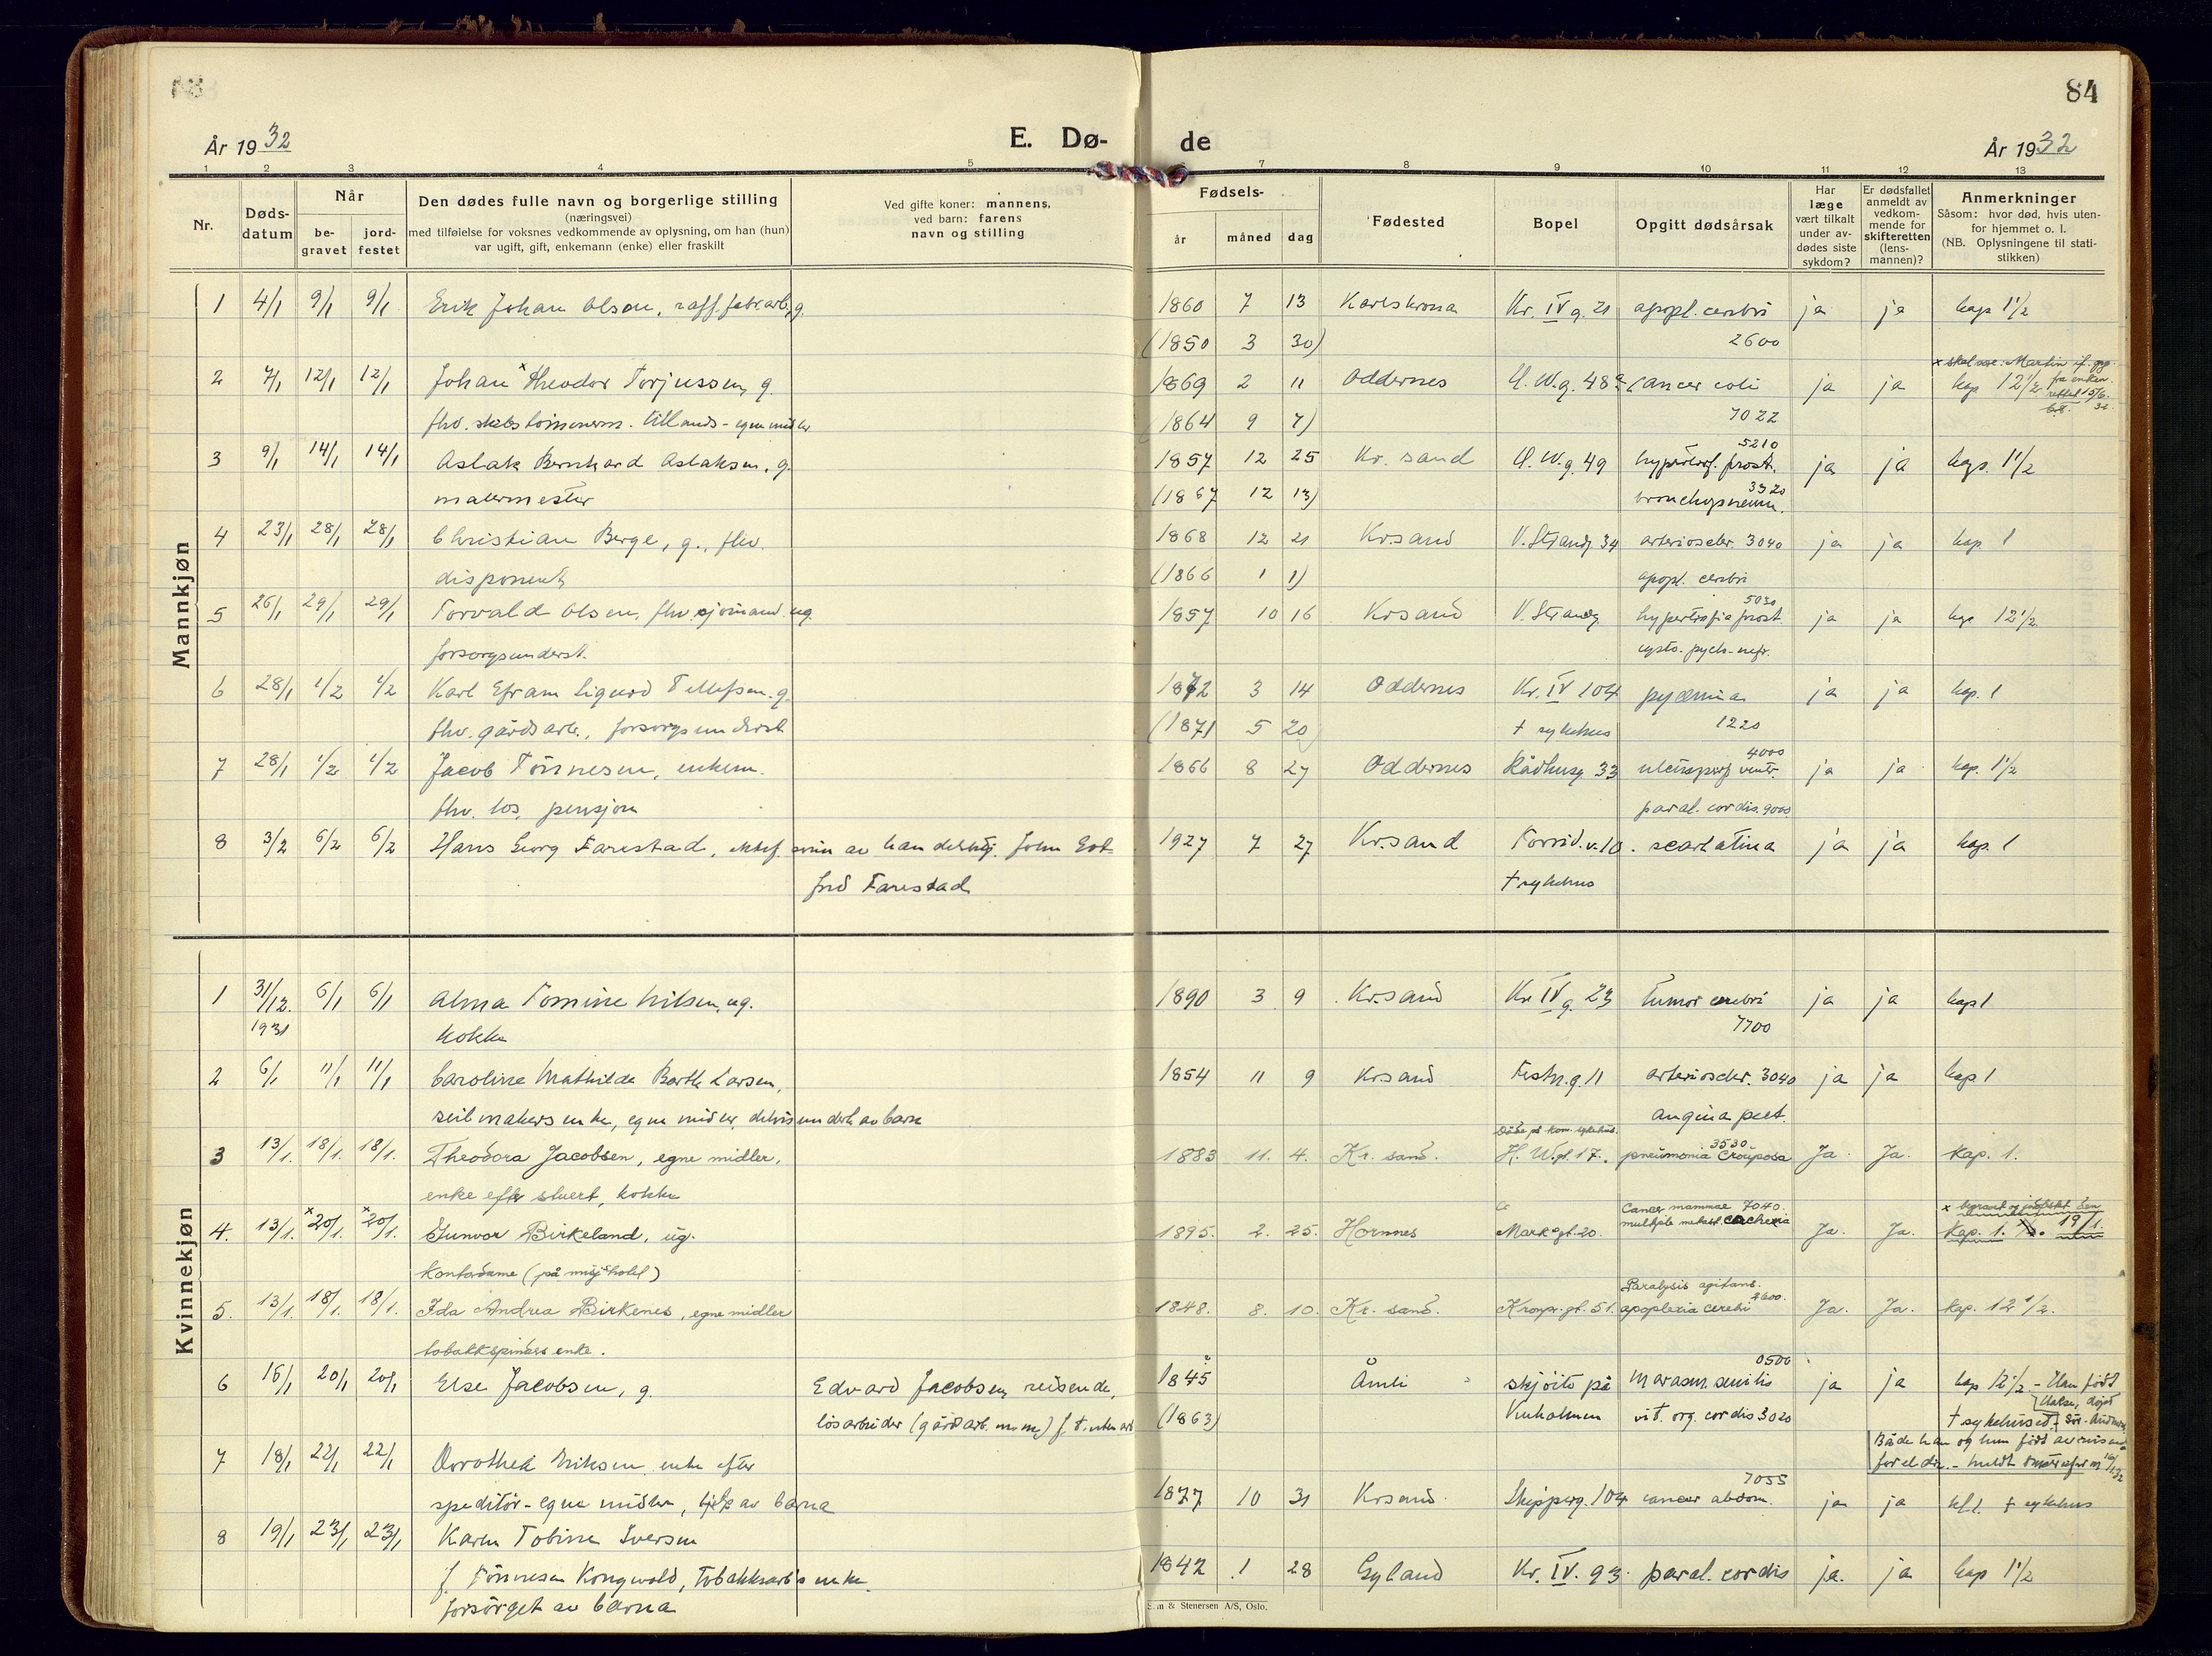 84
År 1932
E. Dø-
de
År 1932
1 2 3 4 5 7 8 9 10 11 12 13
Nr.
Døds-
datum
Når
be-
gravet
jord-
festet
Den dødes fulle navn og borgerlige stilling
(næringsvei)
med tilføielse for voksnes vedkommende av oplysning, om han (hun)
var ugift, gift, enkemann (enke) eller fraskilt
Ved gifte koner: mannens,
ved barn: farens
navn og stilling
Fødsels-
år måned dag
Fødested
Bopel
Opgitt dødsårsak
Har
læge
vært tilkalt
under av-
dødes siste
sykdom?
Er dødsfallet
anmeldt av
vedkom-
mende for
skifteretten
(lens-
mannen)?
Anmerkninger
Såsom: hvor død, hvis uten-
for hjemmet o. l.
(NB. Oplysningene til stati-
stikken)
Mannkjøn
1 4/1 9/1 9/1 Erik Johan Olsen, raff.fabr.arb, g. 1860 7 13 Karlskrona Kr. IV g. 21 apopl. cerebri ja ja kap 1 1/2
(1850 3 30) 2600
x skal være: Martin if. opg.
2 7/1 12/1 12/1 Johan x Theodor Torjussen, g. 1869 2 11 Oddernes H. W. g. 48 cancer coli ja ja kap 12 1/2 fra enken.
fhv. skibstømmerm. tillands - egne midler (1864 9 7) 7022
3 9/1 14/1 14/1 Aslak Bernhard Aslaksen, g. 1857 12 25 Kr. sand H. W. g. 49 hypertrof. prost. 5210 ja ja kap. 1 1/2
malermester (1867 12 13) bronchopneum. 3320
4 23/1 28/1 28/1 Christian Berge, g., fhv. 1868 12 21 Krsand V. Strandg 34 arterioscler. 3040 ja ja kap. 1
disponent (1866 1 1) apopl. cerebri
5 26/1 29/1 29/1 Torvald Olsen, fhv. sjømand. ug. 1857 10 16 Krsand V. Strandg. hypertrofia prost. 5030 ja ja kap 12 1/2
forsorgsunderst. cysto-pyelo-nefr.
6 28/1 1/2 1/2 Karl Efram Sigurd Tellefsen. g. 1872 3 14 Oddernes Kr. IV 104 pyæmia ja ja kap. 1
fhv. gårdsarb., forsorgsunderst. (1871 5 20) † sykehus 1220
7 28/1 1/2 1/2 Jacob Tönnesen, enkem. 1866 8 27 Oddernes Rådhusg 33 ulcus perf ventr. 4000 ja ja kap. 1 1/2
fhv. los, pensjon paral. cordis. 9000
8 3/2 6/2 6/2 Hans Georg Farestad, ektef. sönn av handelsbtj. John Got- 1927 7 27 Kr.sand Torrid.v. 10. scarlatina ja ja kap. 1
fred Farestad † sykehus
Kvinnekjøn
1 31/12. 6/1 6/1 Alma Tomine Nilsen, ug. 1890 3 9 Kr.sand Kr IV g. 23 Tumor cerebri ja ja kap 1
1931 kokke 7700
2 6/1 11/1 11/1 Caroline Mathilde Barth Larsen, 1854 11 9 Krsand Festn.g. 11 arterioscler. 3040 ja ja kap 1
seilmakers enke, egne midler, delvis underh. av barn angina pect.
Døde på kom. sykehus.
3 13/1. 18/1. 18/1. Theodora Jacobsen, egne midler. 1883 11. 4. Kr. sand. H. W.gt. 17. pneumonia crouposa 3530. Ja. Ja. Kap. 1.
enke efter stuert, kokke
Cancer mammae 7040. x begravet og jordfestet den
4. 13/1. x20/1. x20/1. Gunvor Birkeland, ug. 1895. 2. 25. Hornnes Mark gt. 20. multiple metast. cachexia Ja. Ja. Kap. 1. 19/1.
Kontordame (på misj. hotel)
Paralysis agitans.
5. 13/1. 18/1. 18/1. Ida Andrea Birkenes, egne midler 1848. 8. 10. Kr. sand. Kronpr. gt. 51. apoplexia cerebi 2600. Ja. Ja. kap. 12 1/2.
tobakkspinders enke.
6 16/1 20/1 20/1 Else Jacobsen, g. Edvard Jacobsen, reisende, 1845 ? Åmli skjöite på marasm. senilis 0500 ja ja kap 12 1/2 - Han født
lösarbeider (gårdsarb. m.m.) f. t. uten arb (1863) Kuholmen vit. org. cordis 3020 † sykehuset
Både han og hun født av reisende
foreldre. - meldt
7 18/1 22/1 22/1 Dorothea Eriksen, enke efter
speditör - egne midler, hjelp av barna 1877 10 31 Krsand. Skipperg. 104 cancer abdom. 7055 ja ja kl. 1 † sykehus
8 19/1 23/1 23/1 Karen Tobine Iversen
f. Tönnesen Kongevold, Tobakksarb's enke. 1842 1 28 Gyland Kr. IV. 93 paral. cordis ja. ja kap 1 1/2
forsörget av barna
Sem & Stenersen A/S, Oslo.